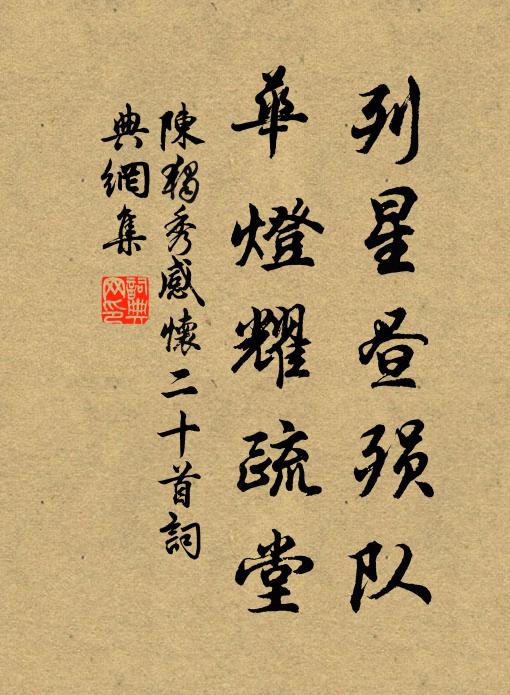 列星昼殒队
華燈耀疏堂
陳獨秀感懷二十首詞
典網集
詞典网印